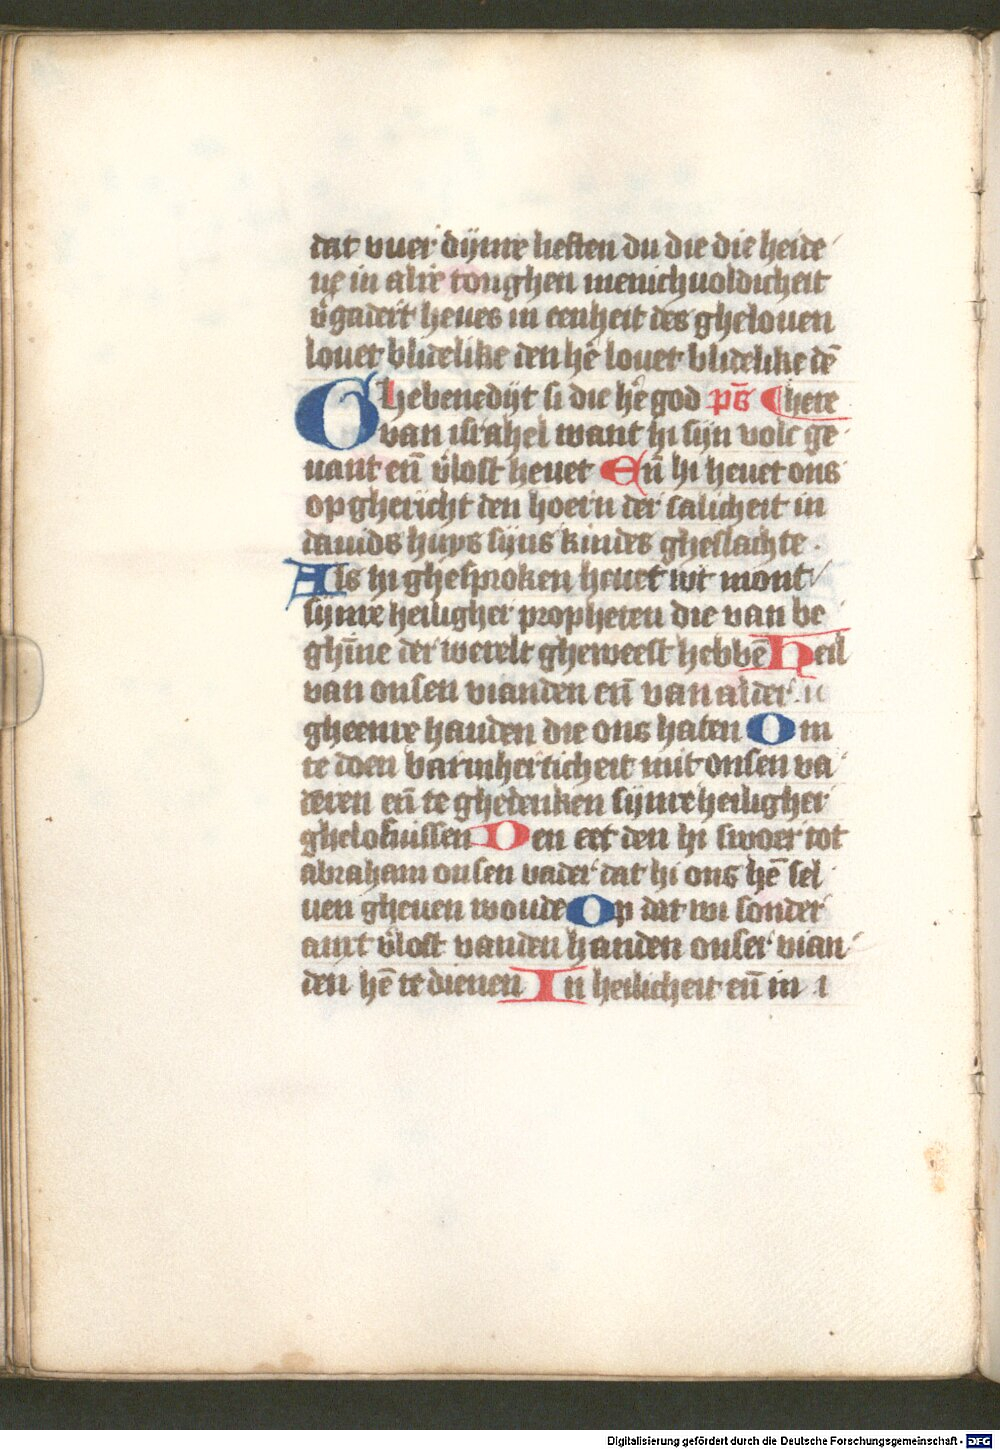 dat vuer dijnre lieften du die die heide
ne in alre tonghen menichuoldicheit
v̄gadert heues in eenheit des ghelouen
louet blidelike den hē louet blidelike dē
Ghebenedijt si die hē god ps̄ here
van israhel want hi sijn volc ge
uant en̄ v̄lost heuet En̄ hi heuet ons
op ghericht den hoern der salicheit in
dauids huys sijns kindes gheslachte .
Als hi ghesproken heuet wt mont
sijnre heiligher propheten die van be
ghīne der werelt gheweest hebbē Heil
van onsen vianden en̄ van alder
gheenre handen die ons haten Om
te doen barmherticheit mit onsen va
deren en̄ te ghedenken sijnre heiligher
ghelofnissen Den eet den hi swoer tot
abraham onsen vader dat hi ons hē sel
uen gheuen woude Op dat wi sonder
anxt v̄lost vanden handen onser vian
den hē te dienen In heilicheit en̄ in
Digitalisierung gefördert durch die Deutsche Forschungsgemeinschaft - DFG